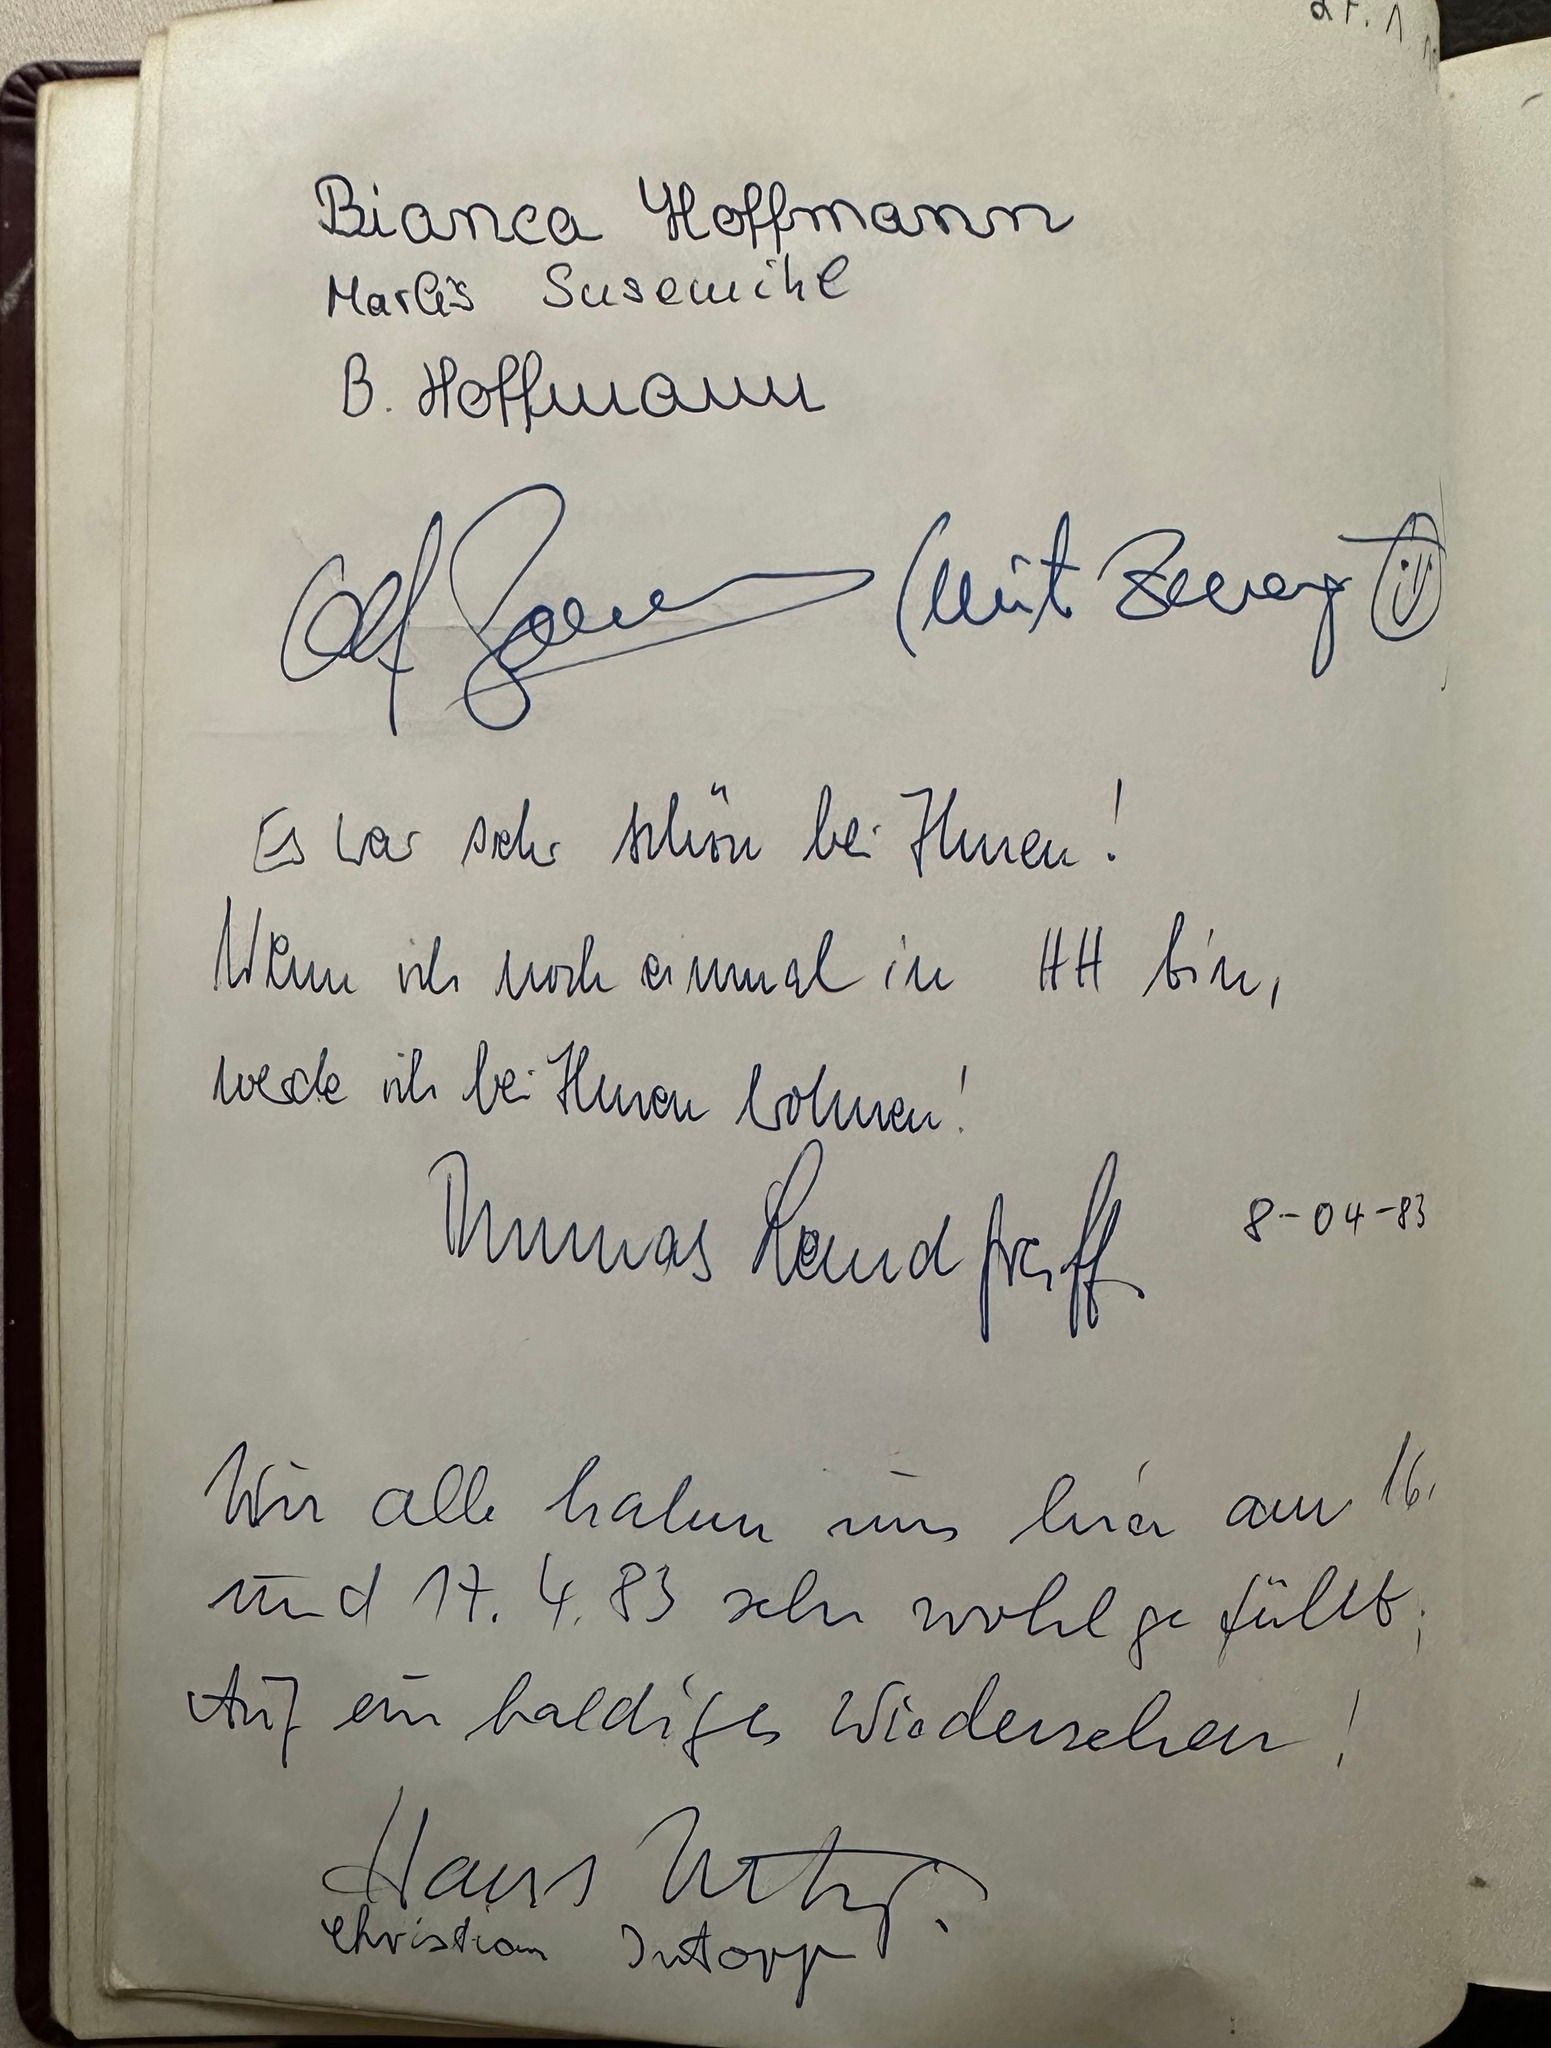 Bianca Hoffmann
Marlis Susemihl
B. Hoffmann
(mit
Es war sehr schön bei Ihnen!
Wenn ich noch einmal in HH bin,
werde ich bei Ihnen wohnen!
Thomas Landgreff 8-04-83
Wir alle haben uns hier am 16.
und 17. 4. 83 sehr wohl gefühlt;
Auf ein baldiges Wiedersehen!
Hans
Christian Intorp